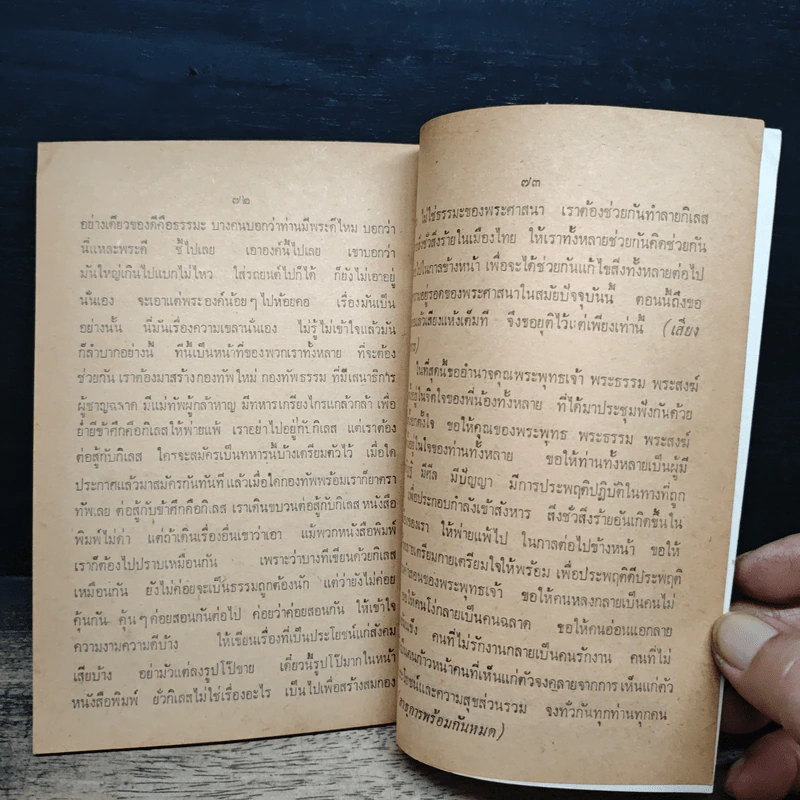 ๗๒
อย่างเดียวของดีคือธรรมะ บางคนบอกว่าท่านมีพระดีไหม บอกว่า
นี่แหละพระดี ชี้ไปเลย เอาองค์นี้ไปเลย เขาบอกว่า
มันใหญ่เกินไปแบกไม่ไหว ใส่รถยนต์ไปก็ได้ ก็ยังไม่เอาอยู่
นั่นเอง จะเอาแต่พระองค์น้อยๆ ไปห้อยคอ เรื่องมันเป็น
อย่างนั้น นี่มันเรื่องความเขลานั่นเอง ไม่รู้ไม่เข้าใจแล้วมัน
ก็ลำบากอย่างนี้ ทีนี้เป็นหน้าที่ของพวกเราทั้งหลาย ที่จะต้อง
ช่วยกัน เราต้องมาสร้างกองทัพใหม่ กองทัพธรรม ที่มีเสนาธิการ
ผู้ชาญฉลาด มีแม่ทัพผู้กล้าหาญ มีทหารเกรียงไกรแกล้วกล้า เพื่อ
ย่ำยีข้าศึกคือกิเลสให้พ่ายแพ้ เราอย่าไปอยู่กับกิเลส แต่เราต้อง
ต่อสู้กับกิเลส ใครจะสมัครเป็นทหารนี้บ้างเตรียมตัวไว้ เมื่อใด
ประกาศแล้วมาสมัครกันทันที แล้วเมื่อใดกองทัพพร้อมเราก็ยาตรา
ทัพเลย ต่อสู้กับข้าศึกคือกิเลส เราเดินขบวนต่อสู้กับกิเลส หนังสือ
พิมพ์ไม่ด่า แต่ถ้าเดินเรื่องอื่นเขาว่าเอา แม้พวกหนังสือพิมพ์
เราก็ต้องไปปราบเหมือนกัน เพราะว่าบางทีเขียนด้วยกิเลส
เหมือนกัน ยังไม่ค่อยจะเป็นธรรมถูกต้องนัก แต่ว่ายังไม่ค่อย
คุ้นกัน คุ้นๆ ค่อยสอนกันต่อไป ค่อยว่าค่อยสอนกัน ให้เข้าใจ
ความงามความดีบ้าง ให้เขียนเรื่องที่เป็นประโยชน์แก่สังคม
เสียบ้าง อย่ามัวแต่ลงรูปโป๊ขาย เดี๋ยวนี้รูปโป๊มากในหน้า
หนังสือพิมพ์ ยั่วกิเลสไม่ใช่เรื่องอะไร เป็นไปเพื่อสร้างสมกอง
๗๓
ไม่ใช่ธรรมะของพระศาสนา เราต้องช่วยกันทำลายกิเลส
สิ่งชั่วสิ่งร้ายในเมืองไทย ให้เราทั้งหลายช่วยกันคิดช่วยกัน
ไปในกาลข้างหน้า เพื่อจะได้ช่วยกันแก้ไขสิ่งทั้งหลายต่อไป
ความอยู่รอดของพระศาสนาในสมัยปัจจุบันนี้ ตอนนี้ถึงขอ
แล้วเสียงแห้งเต็มที จึงขอยุติไว้แต่เพียงเท่านี้ (เสียง
ในที่สุดนี้ขออำนาจคุณพระพุทธเจ้า พระธรรม พระสงฆ์
อยู่ในจิตใจของพี่น้องทั้งหลาย ที่ได้มาประชุมฟังกันด้วย
ตั้งใจ ขอให้คุณของพระพุทธ พระธรรม พระสงฆ์
อยู่ในใจของท่านทั้งหลาย ขอให้ท่านทั้งหลายเป็นผู้มี
มีศีล มีปัญญา มีการประพฤติปฏิบัติในทางที่ถูก
เพื่อประกอบกำลังเข้าสังหาร สิ่งชั่วสิ่งร้ายอันเกิดขึ้นใน
ของเรา ให้พ่ายแพ้ไป ในกาลต่อไปข้างหน้า ขอให้
เตรียมกายเตรียมใจให้พร้อม เพื่อประพฤติดีประพฤติ
คำสอนของพระพุทธเจ้า ขอให้คนหลงกลายเป็นคนไม่
ขอให้คนโง่กลายเป็นคนฉลาด ขอให้คนอ่อนแอกลาย
คนที่ไม่รักงานกลายเป็นคนรักงาน คนที่ไม่
คนก้าวหน้า คนที่เห็นแก่ตัวจงคลายจากการเห็นแก่ตัว
ประโยชน์และความสุขส่วนรวม จงทั่วกันทุกท่านทุกคน
สาธุการพร้อมกันหมด)